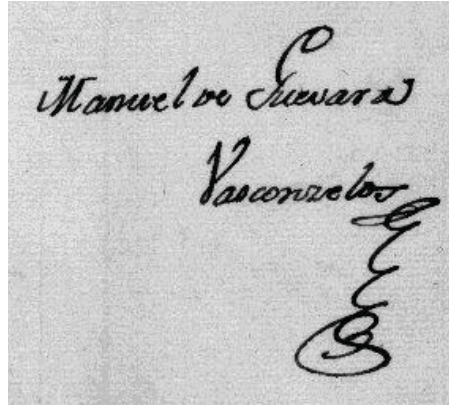 Manuel de Guevara
Vasconzelos